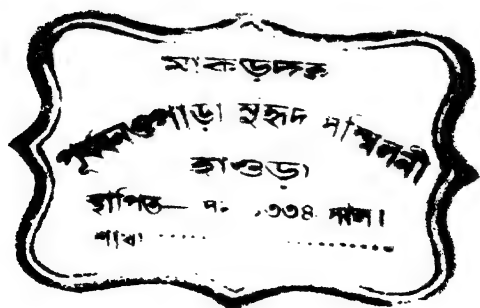 মাকড়দহ
পাড়া সুহৃদ সম্মিলনী
হাওড়া
স্থাপিত— সং ১৩৩৪ সাল।
শাখা ..... ..............